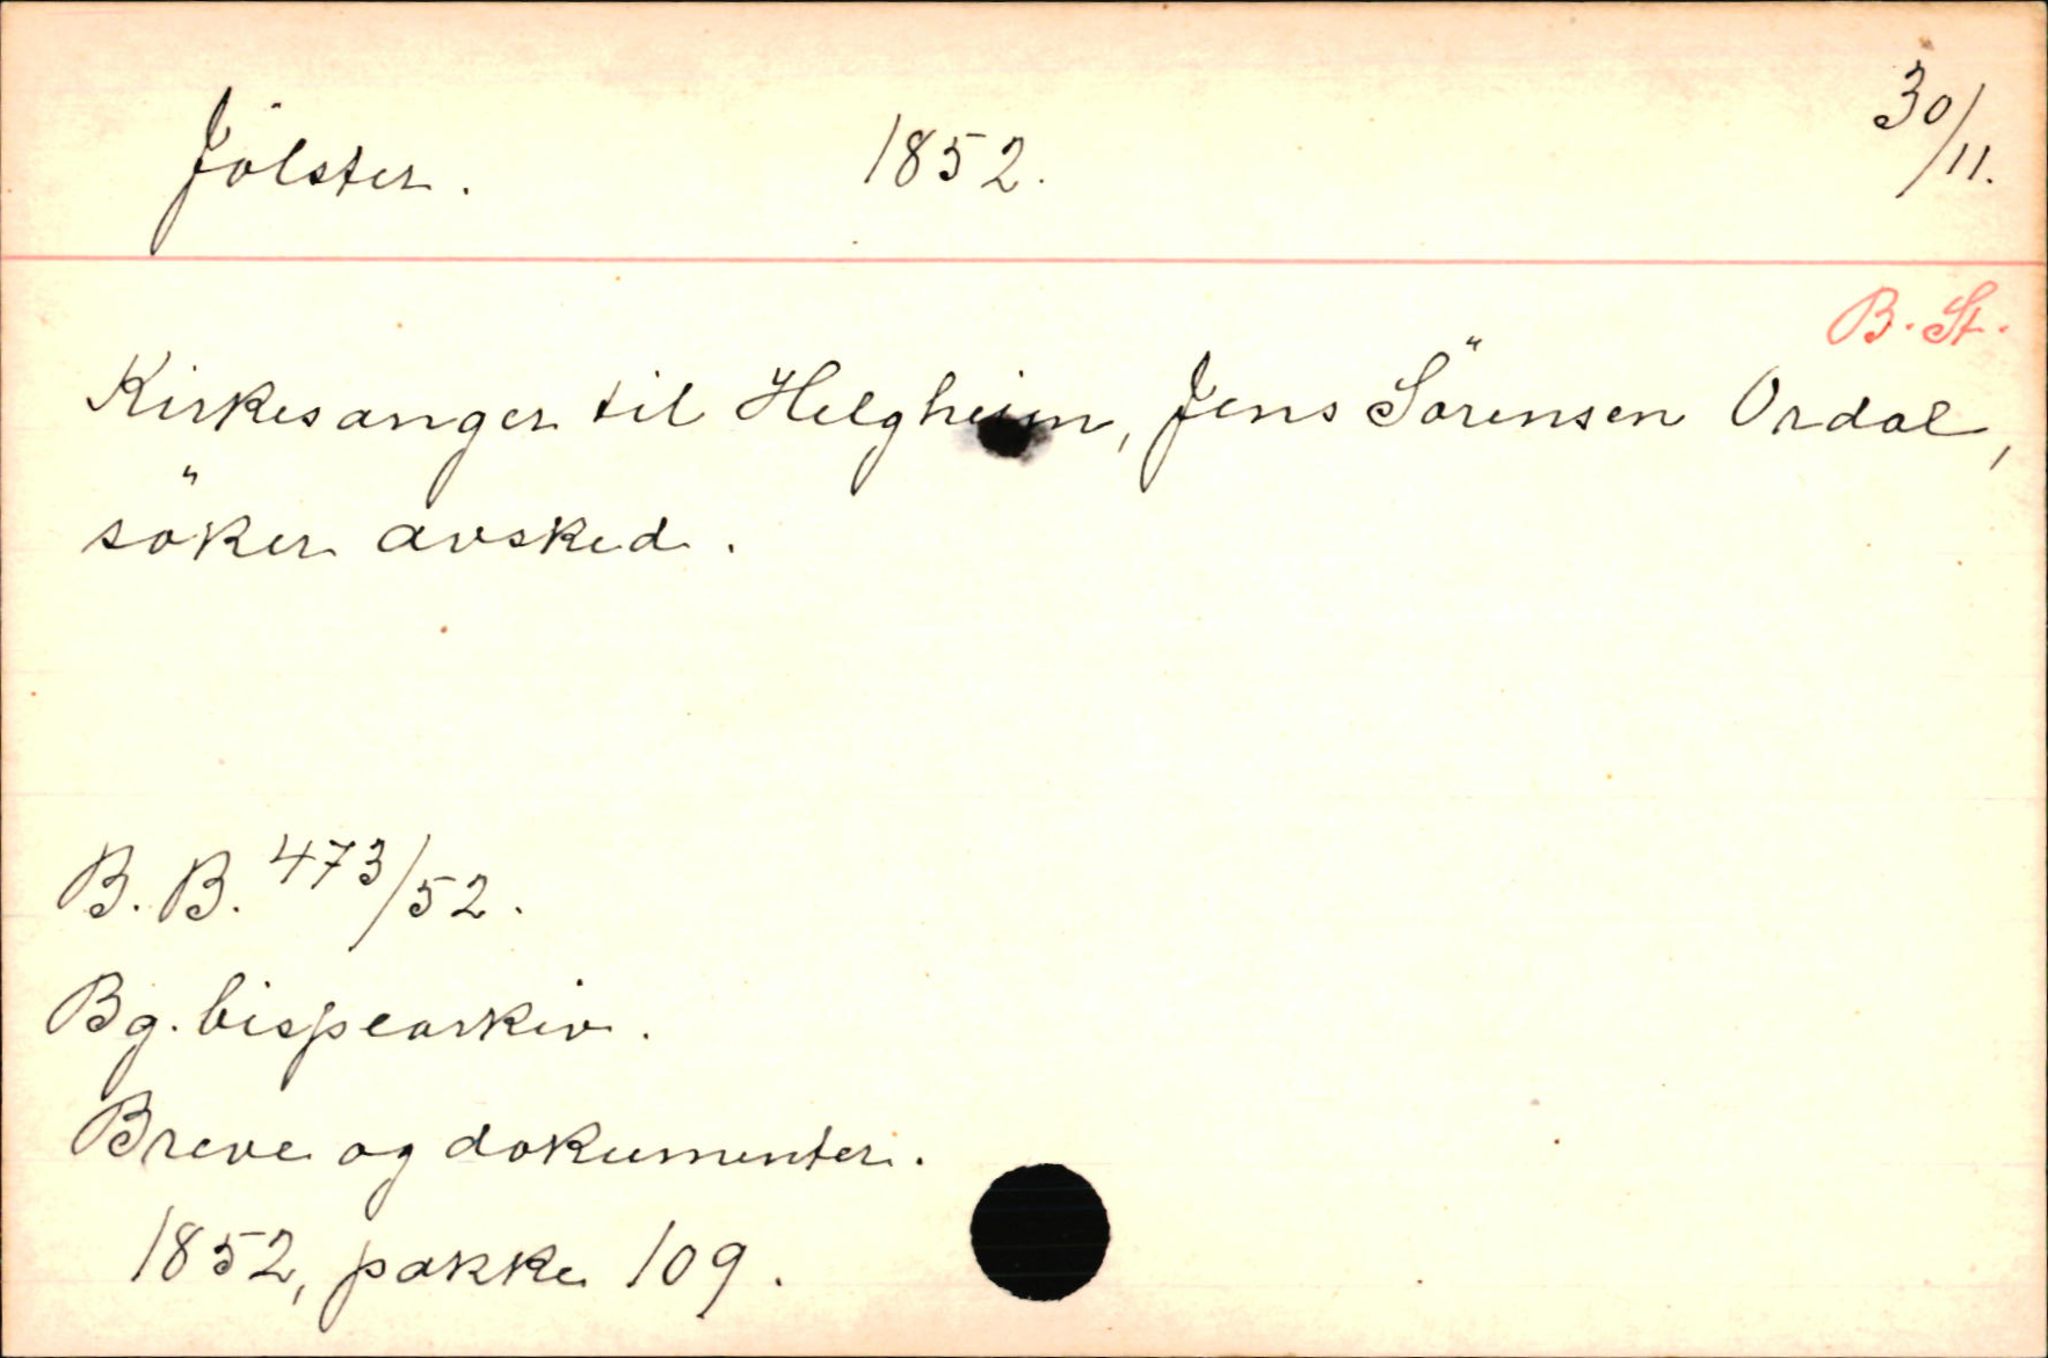 Jölster. 1852. 30/11.
B. St.
Kirkesanger til Helgheim, Jens Sörensen Ordal,
söker avsked.
B. B. 473/52.
Bg. bispearkiv.
Breve og dokumenter.
1852, pakke 109.